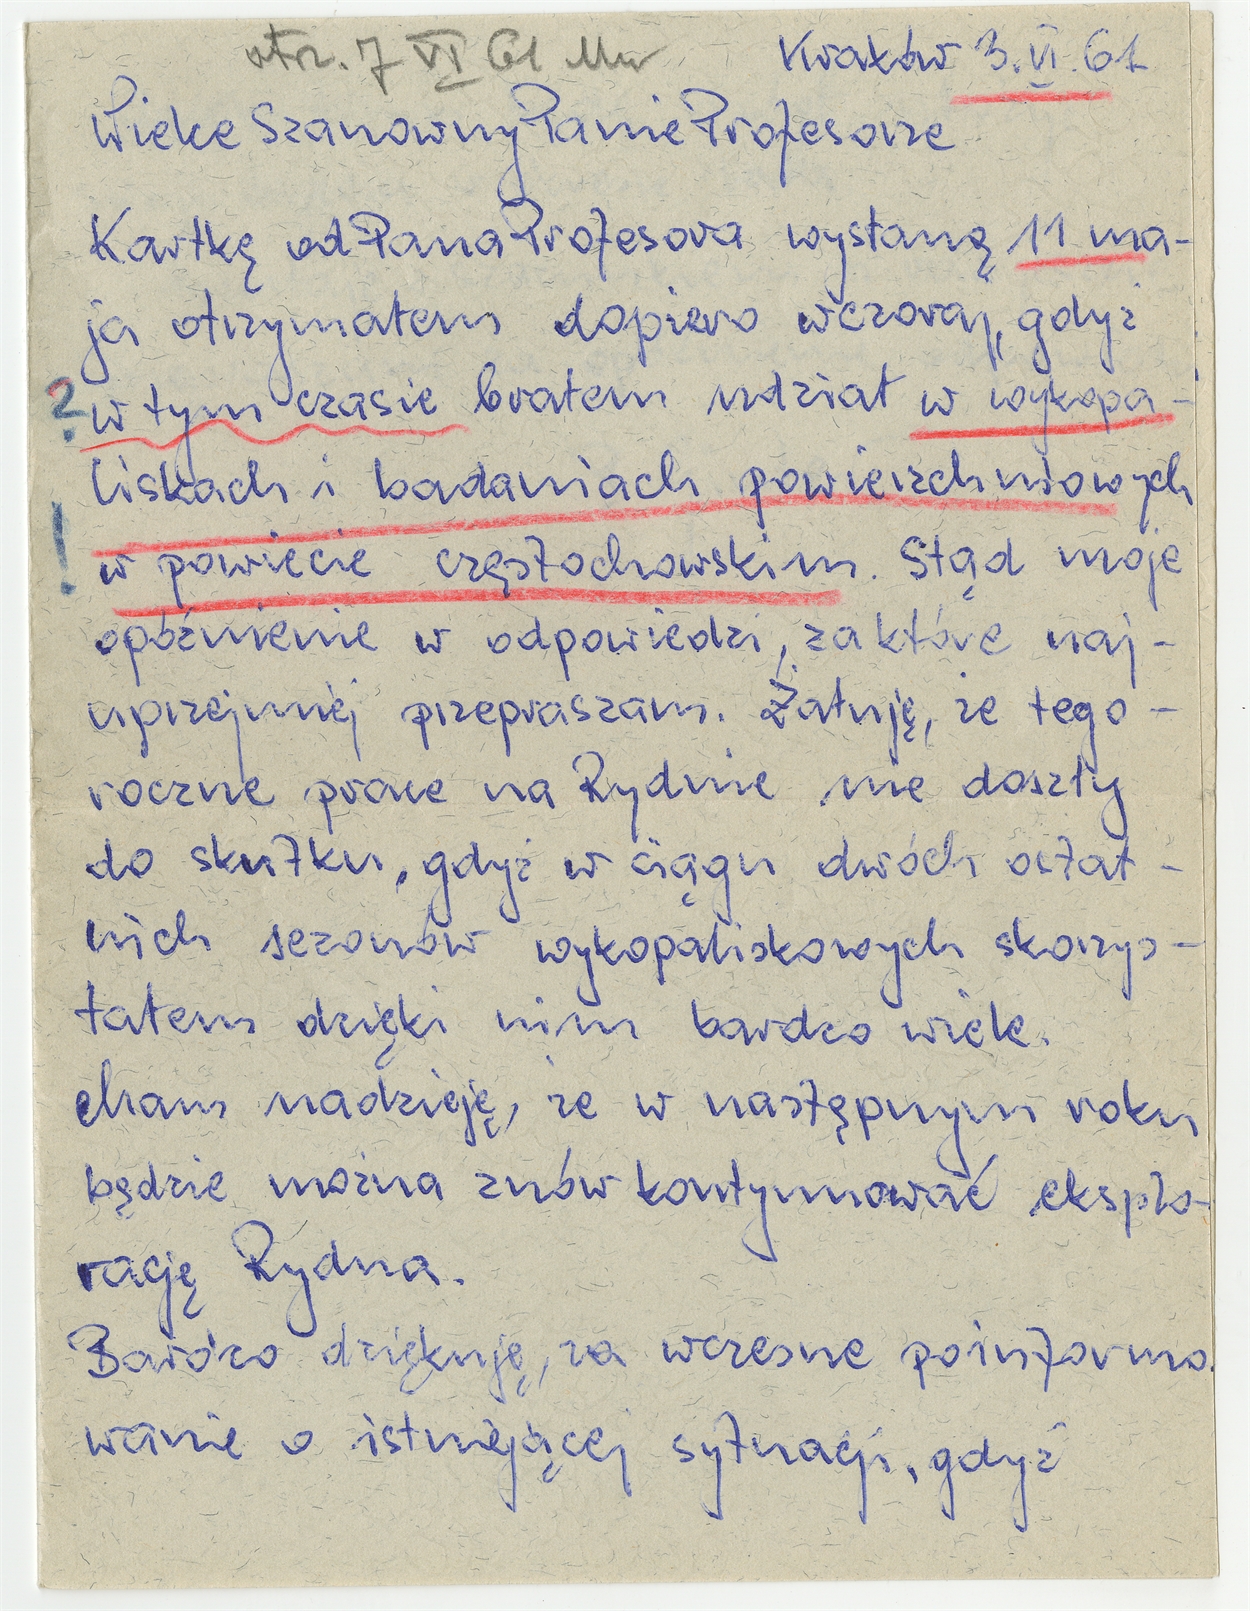 otrz. 7 VI 61 Kraków 3.VI.61
Wielce Szanowny Panie Profesorze
Kartkę od Pana Profesora wysłaną 11 ma-
ja otrzymałem dopiero wczoraj, gdyż
? w tym czasie brałem udział w wykopa-
liskach i badaniach powierzchniowych
! w powiecie częstochowskim. Stąd moje
opóźnienie w odpowiedzi, za które naj-
uprzejmiej przepraszam. Żałuję, że tego-
roczne prace na Rydnie nie doszły
do skutku, gdyż w ciągu dwóch ostat-
nich sezonów wykopaliskowych skorzys-
tałem dzięki nim bardzo wiele.
Mam nadzieję, że w następnym roku
będzie można znów kontynuować eksplo-
rację Rydna.
Bardzo dziękuję, za wczesne poinformo-
wanie o istniejącej sytuacji, gdyż